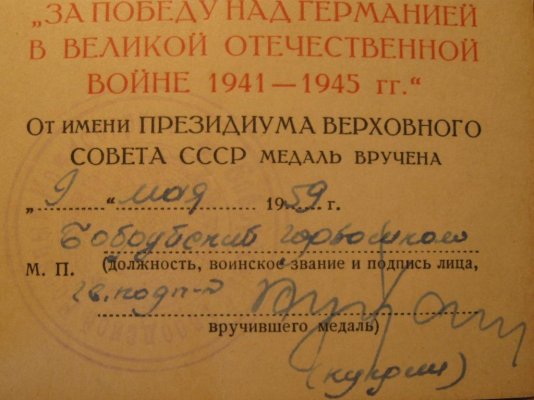 „ЗА ПОБЕДУ НАД ГЕРМАНИЕЙ
В ВЕЛИКОЙ ОТЕЧЕСТВЕННОЙ
ВОЙНЕ 1941—1945 гг.“
ОТ ИМЕНИ ПРЕЗИДИУМА ВЕРХОВНОГО
СОВЕТА СССР МЕДАЛЬ ВРУЧЕНА
„9“ мая 1959 г.
М. П. (должность, воинское звание и подпись лица,
вручившего медаль)